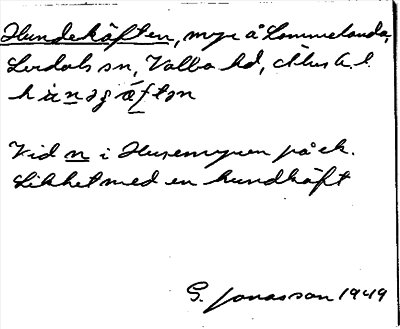 Hundekäften, myr å Lommelanda,
Lerdals sn, Valbo hd, Älvsb. l.
Vid n i Husemyren på ek.
Likhet med en hundkäft
G. Jonasson 1949